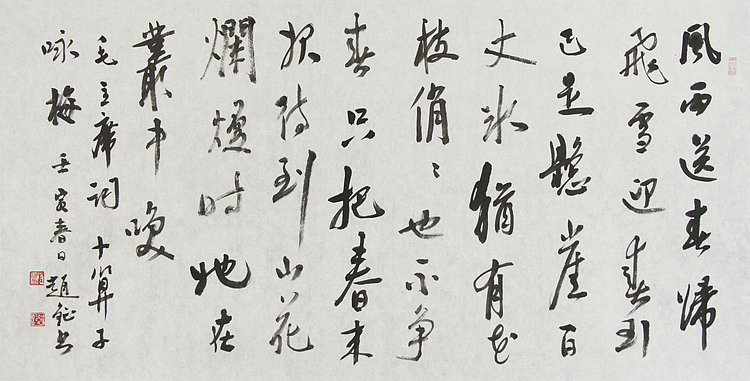 風雨送春歸
飛雪迎春到
已是懸崖百
丈冰猶有花
枝俏〻也不争
春只把春来
报待到山花
爛熳時她在
叢中咲
毛主席詞 卜算子
咏梅 壬寅春日趙書